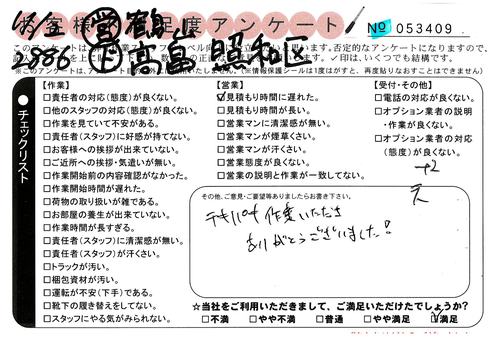 お客様満足度アンケート
№ 053409
営 鶴
高島 昭和区
チェックリスト
【作業】
□責任者の対応(態度)が良くない。
□他のスタッフの対応(態度)が良くない。
□作業を見ていて不安がある。
□責任者(スタッフ)に好感が持てない。
□お客様への挨拶が出来ていない。
□ご近所への挨拶・気遣いが無い。
□作業開始前の内容確認がなかった。
□作業開始時間が遅れた。
□荷物の取り扱いが雑である。
□お部屋の養生が出来ていない。
□作業時間が長すぎる。
□責任者(スタッフ)に清潔感が無い。
□責任者(スタッフ)が汗くさい。
□トラックが汚い。
□梱包資材が汚い。
□運転が不安(下手)である。
□靴下の履き替えをしてない。
□スタッフにやる気がみられない。
【営業】
☑見積もり時間に遅れた。
□見積もり時間が長い。
□営業マンに清潔感が無い。
□営業マンが煙草くさい。
□営業マンが汗くさい。
□営業態度が良くない。
□営業の説明と作業が一致してない。
【受付・その他】
□電話の対応が良くない。
□オプション業者の説明
・作業が良くない。
□オプション業者の対応
(態度)が良くない。
+2
天
その他、ご意見・ご要望等ありましたらお書き下さい。
テキパキ作業いただき
ありがとうございました!
☆当社をご利用いただきまして、ご満足いただけたでしょうか?
□不満 □やや不満 □普通 □やや満足 ☑満足